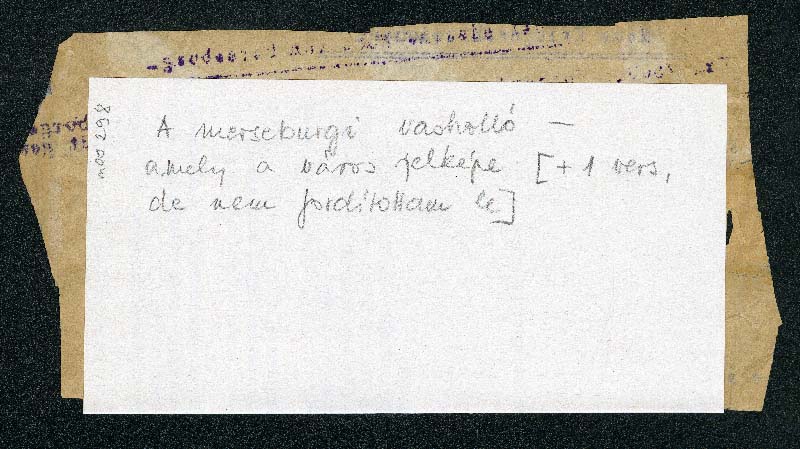 m00 298
A merseburgi vasholló –
amely a város jelképe [+ 1 vers,
de nem fordítottam le]